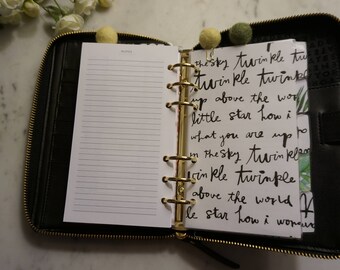 the sky twinkle twinkle
twinkle twinkle
up above the world
little star how i
what you are up
in the sky twinkle
twinkle twinkle
above the world
le star how i wonder